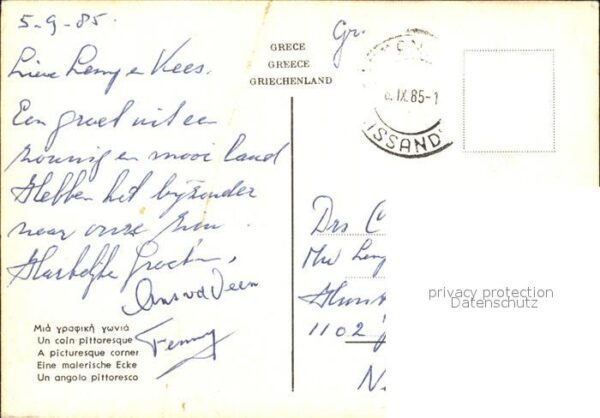 5-9-85.
Lieve Leny en Kees.
Een groet uit een
zonnig en mooi land
Hebben het bijzonder
naar onze zin.
Hartelijke Groeten,
Ans vd Veen
Fenny
Μιὰ γραφικὴ γωνιά
Un coin pittoresque
A picturesque corner
Eine malerische Ecke
Un angolo pittoresco
GRECE
GREECE
GRIECHENLAND
Gr.
IX.85-1
ISSAND
Drs C
Mw Leny
1102
N
privacy protection
Datenschutz